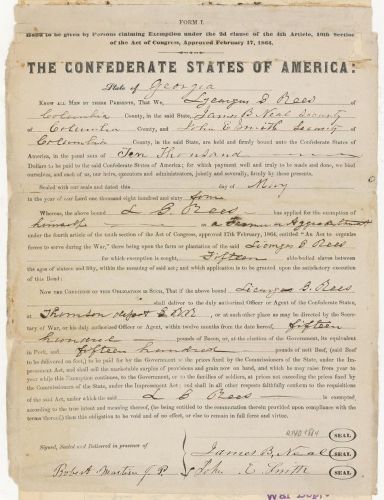 FORM I.
Bond to be given by Persons claiming Exemption under the 2d clause of the 4th Article, 10th Section
of the Act of Congress, Approved February 17, 1864.
THE CONFEDERATE STATES OF AMERICA:
State of Georgia
KNOW ALL MEN BY THESE PRESENTS, That We, Lycurgus E Rees of
Columbia County, in the said State, James B. Neal Security
of Columbia County, and John E Smith Security of
Columbia County, in the said State, are held and firmly bound unto the Confederate States of
America, in the penal sum of Ten Thousand
Dollars to be paid to the said Confederate States of America; for which payment well and truly to be made and done, we bind
ourselves, and each of us, our heirs, executors and administrators, jointly and severally, firmly by these presents.
Sealed with our seals and dated this day of May
in the year of our Lord one thousand eight hundred and sixty four
Whereas, the above bound L. E. Rees has applied for the exemption of
himself a Farmer or Agriculturist
under the fourth article of the tenth section of the Act of Congress, approved 17th February, 1864, entitled "An Act to organize
forces to serve during the War," there being upon the farm or plantation of the said Lycurgus E Rees
for which exemption is sought, Fifteen able-bodied slaves between
the ages of sixteen and fifty, within the meaning of said act; and which application is to be granted upon the satisfactory execution
of this Bond:
Now the Condition of this Obligation is Such, That if the above bound Lycurgus E. Rees
shall deliver to the duly authorized Officer or Agent of the Confederate States,
at Thomson depot G.R.R, or at such other place as may be directed by the Secre-
tary of War, or his duly authorized Officer or Agent, within twelve months from the date hereof, fifteen
hundred pounds of Bacon, or, at the election of the Government, its equivalent
in Pork, and fifteen hundred pounds of nett Beef, (said Beef
to be delivered on foot,) to be paid for by the Government at the prices fixed by the Commissioners of the State, under the Im-
pressment Act, and shall sell the marketable surplus of provisions and grain now on hand, and which he may raise from year to
year while this Exemption continues, to the Government, or to the families of soldiers, at prices not exceeding the prices fixed by
the Commissioners of the State, under the Impressment Act; and shall in all other respects faithfully conform to the requisitions
of the said Act, under which the said L E Rees is exempted,
according to the true intent and meaning thereof, (he being entitled to the commutation therein provided upon compliance with the
terms thereof,) then this obligation to be void and of no effect, or else to remain in full force and virtue.
Signed, Sealed and Delivered in presence of
James B. Neal SEAL
Robert Martin J. P. John E Smith SEAL
SEAL
War Dept.